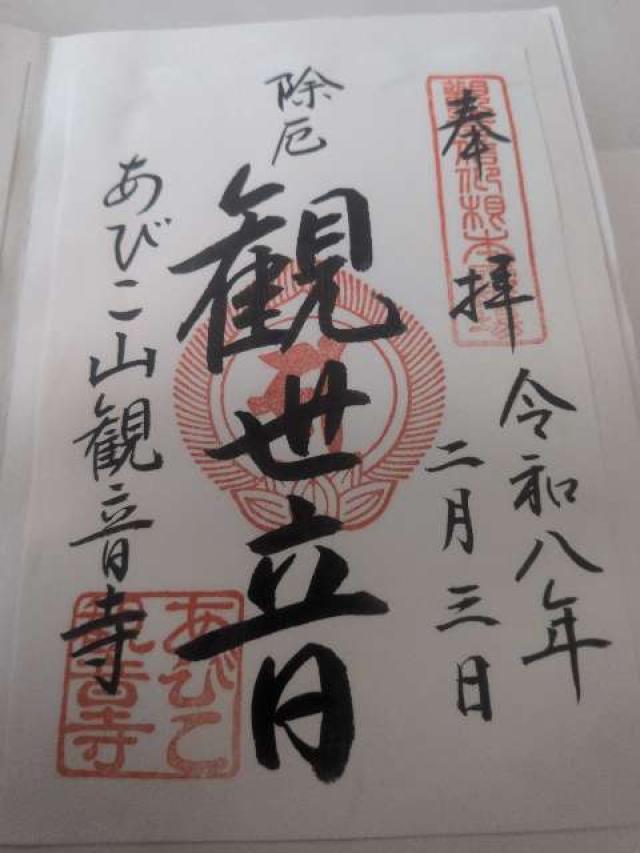 奉拝
令和八年
二月三日
除厄
観世音
あびこ山観音寺
あびこ
観音寺